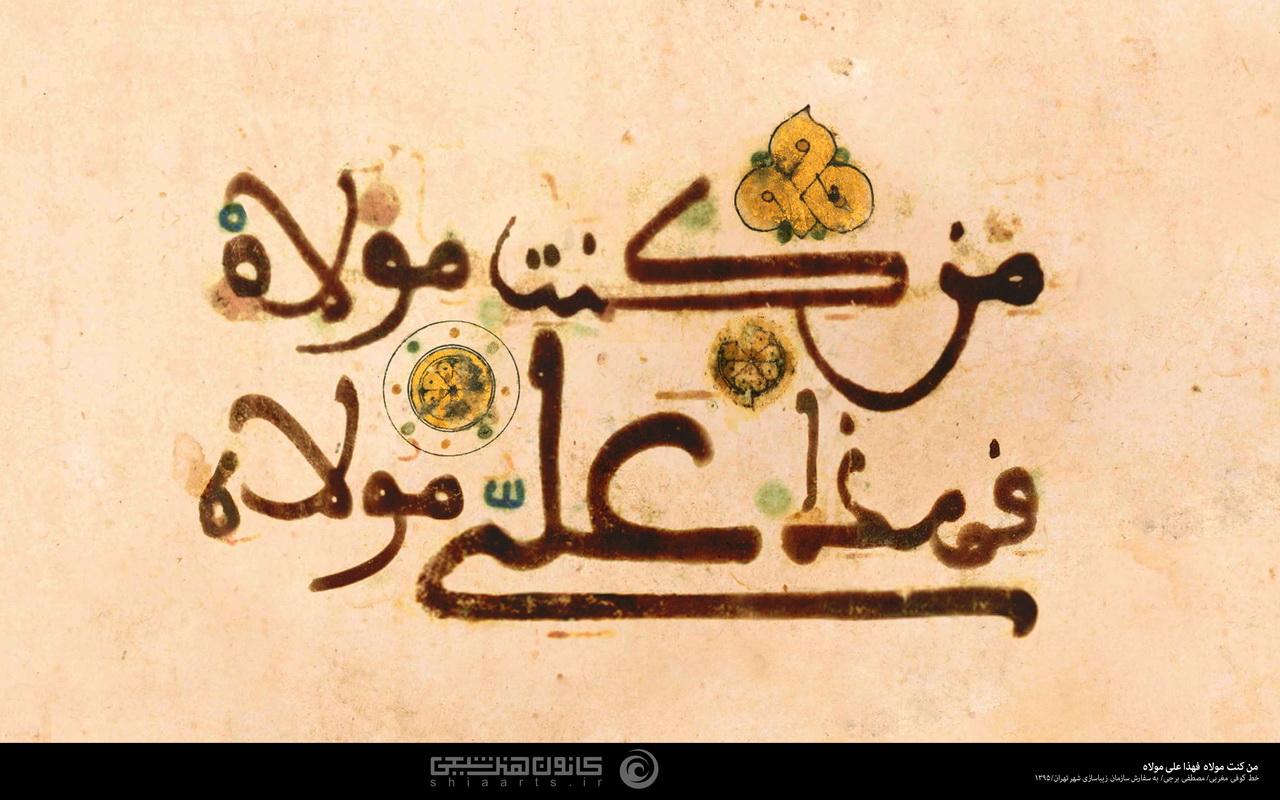 من كنت مولاه
فهذا علىّ مولاه
كانون هنر شیعی
shiaarts.ir
من کنت مولاه فهذا علی مولاه
خط کوفی مغربی/ مصطفی برجی/ به سفارش سازمان زیباسازی شهر تهران/۱۳۹۵